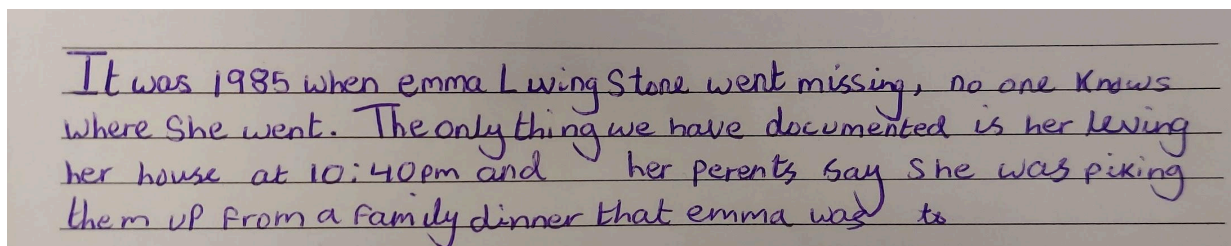 It was 1985 when emma Living Stone went missing, no one knows
where She went. The only thing we have documented is her leving
her house at 10:40pm and her perents say She was piking
them up from a family dinner that emma was to